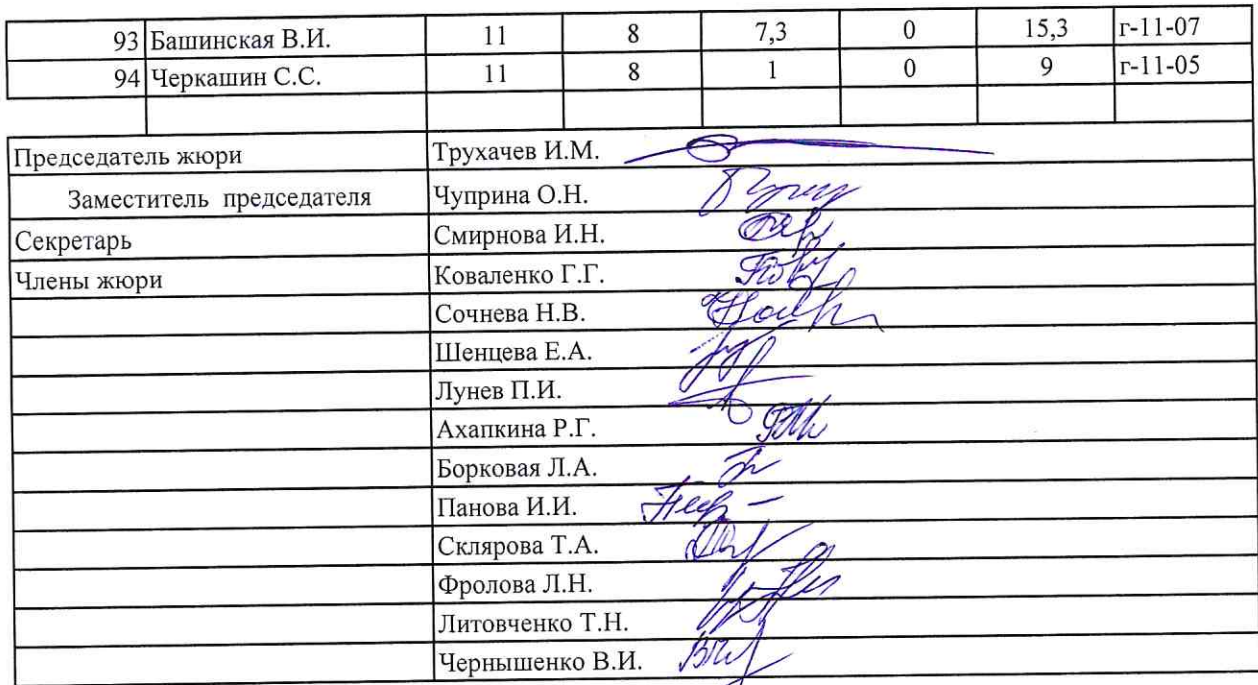 93 Башинская В.И. 11 8 7,3 0 15,3 г-11-07
94 Черкашин С.С. 11 8 1 0 9 г-11-05
Председатель жюри Трухачев И.М.
Заместитель председателя Чуприна О.Н.
Секретарь Смирнова И.Н.
Члены жюри Коваленко Г.Г.
Сочнева Н.В.
Шенцева Е.А.
Лунев П.И.
Ахапкина Р.Г.
Борковая Л.А.
Панова И.И.
Склярова Т.А.
Фролова Л.Н.
Литовченко Т.Н.
Чернышенко В.И.